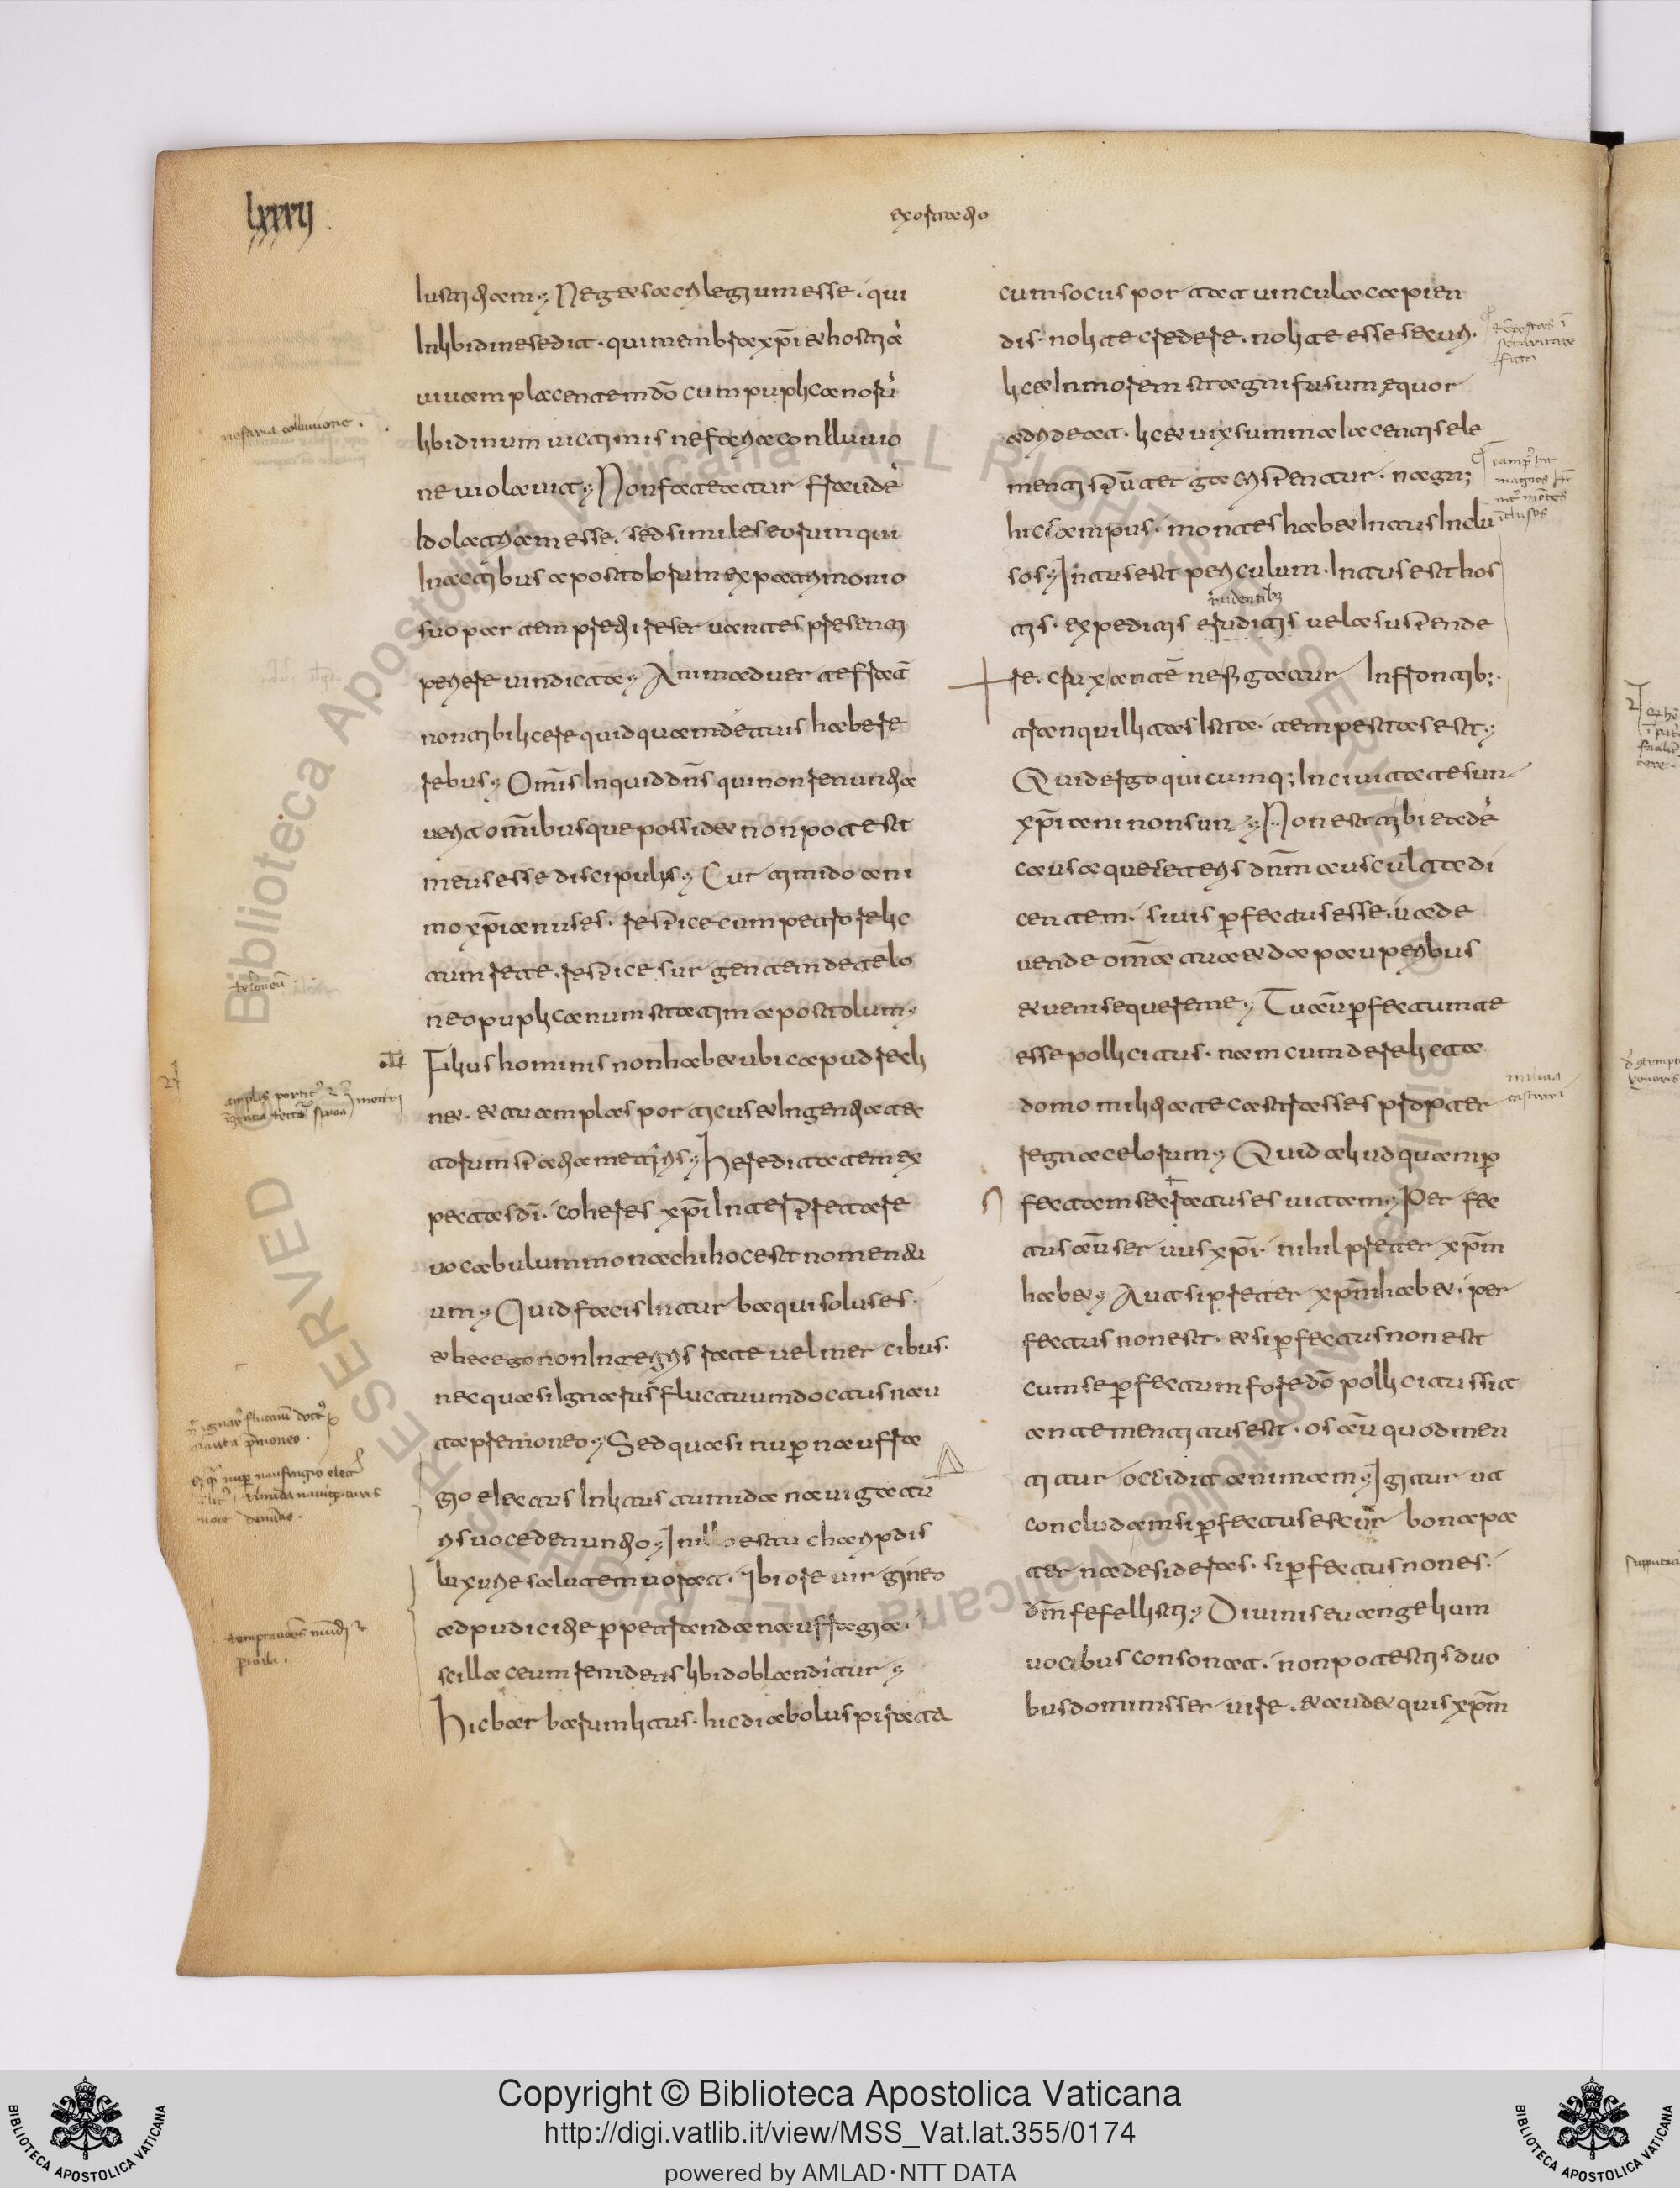 lxxxij
exortatio
lustitiam. Negetsacrilegumesse. qui
Inlibidinesedit. quimembraxp̄iethostiā
uiuamplacentemdō cumpuplicanorū
libidinum uictimis nefariaconlluuio
neuiolauit. Nonfateatur fraudē
Idolatriamesse. sedsimileseorumqui
Inactibusapostolorumexpatrimonio
suopartemprętireseruantespresenti
periere uindicta. Animaduerte frat̄
nontibilicere quidquamdetuishabere
rebus. Om̄is Inquiddn̄s quinonrenuntia
ueritom̄ibusquepossidet nonpotest
meusessediscipulus. Cur timidoani
moxp̄ianuses. respicecumpatrorelic
tumrete. respicesurgentemdetelo
neopuplicanumstatimapostolum.
Filiushominis nonhabetubicapudrecli
net. ettuamplasporticusetIngentiatec
torumspatiametiris. Hereditatemex
pectasdī. coheres xp̄iInterpretare
uocabulummonachihocestnomentu
um. QuidfacisInturbaquisoluses.
ethecegononIntegris rateuelmercibus.
necquasiIgnarusfluctuumdoctusnau
tapremoneo. Sedquasinup̄naufra
gioeiectusInlitus timidanauigatu
risuocedenuntio. Inilloestucharipdis
luxuriesalutemuorat. Ibi ore uirgineo
adpudicitiep̄petrandanaufragia.
scillaceumrenidenslibidoblanditur.
Hicbarbarumlitus. hicdiabolus pirata
cumsociisportatuinculacapien
dis. nolitecredere. noliteesse securi.
licetInmoremstagnifusumequor
adrideat. licetuixsummaiacentisele
mentisp̄uterga crispentur. magn;
hiccampus. monteshabetIntusInclu
sos. Intusestpericulum. Intusesthos
tis. expeditis eruditis uelasuspende
rudentib;
re. cruxantēnefigatur Infrontib;.
tranquillitasista. tempestasest.
Quidergoquicumq; Inciuitatesun
xp̄ianinonsun. Nonesttibieadē
causaqueceteris dn̄mausculta di
centem. siuis p̄fectusesse. uade
uendeom̄iatuaetdapauperibus
etueniseque reme. Tuaūp̄fectumte
essepollicitus. namcumderelicta
domo militiatecastrassesproptẹr
regnacelorum. Quidaliudquamp̄
fectamsecratuses uitam. Perfec
tusaūseruusxp̄i. nihil preter xp̄m
habet. Autsipreter xp̄mhabet. per
fectusnonest. etsip̄fectusnonest
cumsep̄fectumforedō pollicitussit
antementitusest. osaū quodmen
titur occiditanimam. Igitur ut
concludamsip̄fectuses cur bonapa
ternadesideras. sip̄fectusnones.
dn̄mfefellisti. Diuinis euangelium
uocibusconsonat. nonpotestisduo
busdominisseruire. etaudetquisxp̄m
nefaria colluuione.
teloneū
Copyright © Biblioteca Apostolica Vaticana
http://digi.vatlib.it/view/MSS_Vat.lat.355/0174
powered by AMLAD·NTT DATA
BIBLIOTECA APOSTOLICA VATICANA
BIBLIOTECA APOSTOLICA VATICANA